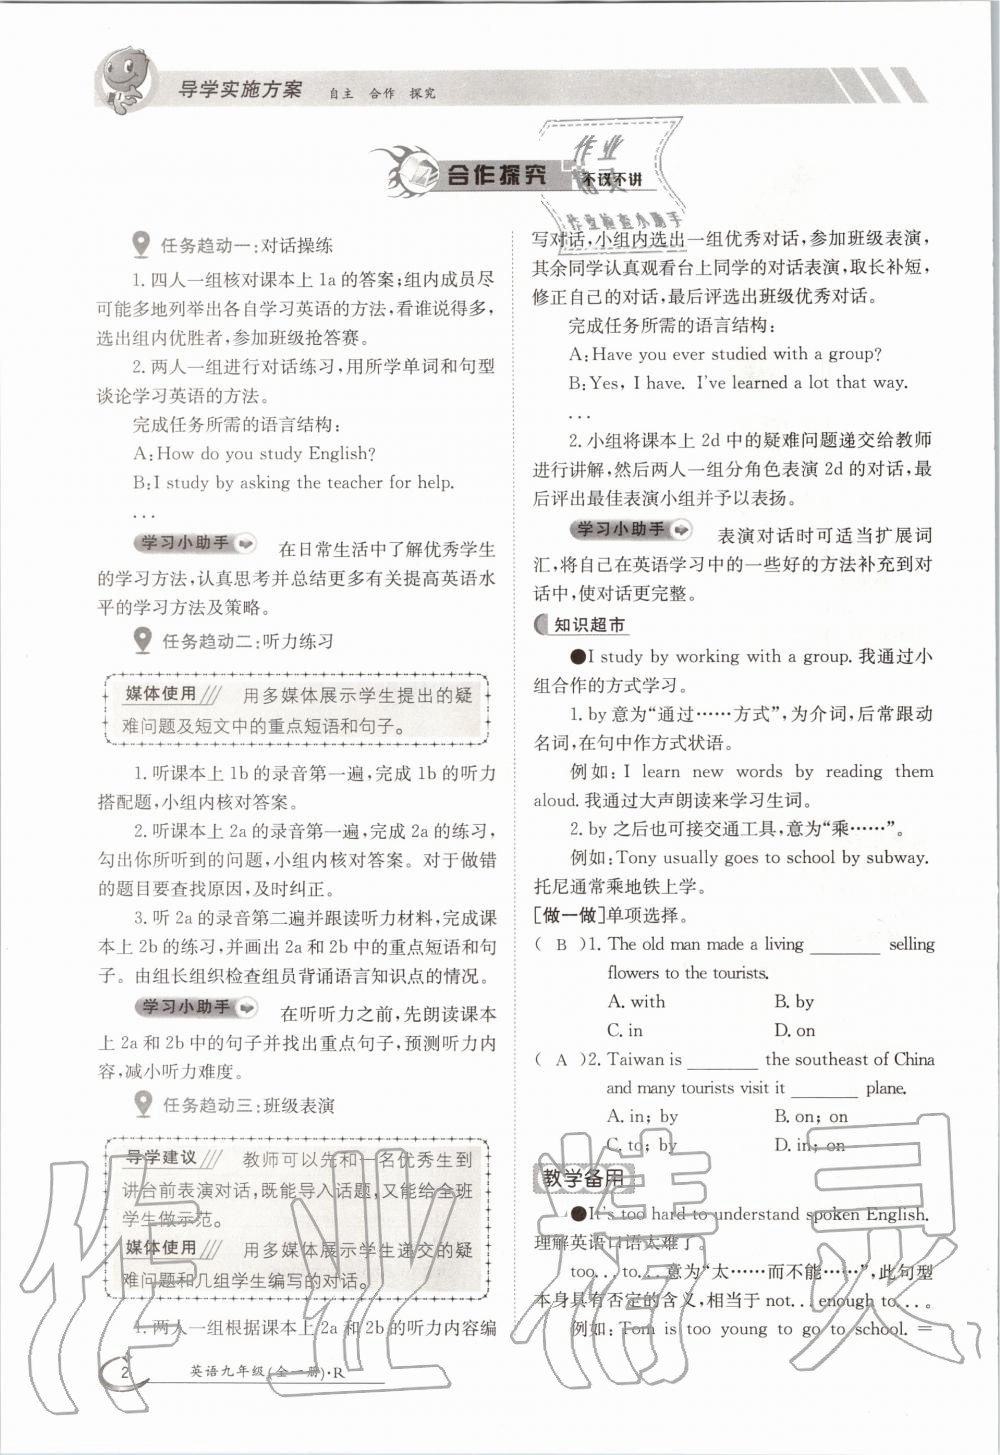 导学实施方案 自主 合作 探究
合作探究 不议不讲
作业
作业检查小助手
任务趋动一:对话操练
1.四人一组核对课本上 1a 的答案;组内成员尽
可能多地列举出各自学习英语的方法,看谁说得多,
选出组内优胜者,参加班级抢答赛。
2.两人一组进行对话练习,用所学单词和句型
谈论学习英语的方法。
完成任务所需的语言结构:
A:How do you study English?
B:I study by asking the teacher for help.
...
学习小助手 在日常生活中了解优秀学生
的学习方法,认真思考并总结更多有关提高英语水
平的学习方法及策略。
任务趋动二:听力练习
媒体使用 用多媒体展示学生提出的疑
难问题及短文中的重点短语和句子。
1.听课本上 1b 的录音第一遍,完成 1b 的听力
搭配题,小组内核对答案。
2.听课本上 2a 的录音第一遍,完成 2a 的练习,
勾出你所听到的问题,小组内核对答案。对于做错
的题目要查找原因,及时纠正。
3.听 2a 的录音第二遍并跟读听力材料,完成课
本上 2b 的练习,并画出 2a 和 2b 中的重点短语和句
子。由组长组织检查组员背诵语言知识点的情况。
学习小助手 在听听力之前,先朗读课本
上 2a 和 2b 中的句子并找出重点句子,预测听力内
容,减小听力难度。
任务趋动三:班级表演
导学建议 教师可以先和一名优秀生到
讲台前表演对话,既能导入话题,又能给全班
学生做示范。
媒体使用 用多媒体展示学生递交的疑
难问题和几组学生编写的对话。
1.两人一组根据课本上 2a 和 2b 的听力内容编
写对话,小组内选出一组优秀对话,参加班级表演,
其余同学认真观看台上同学的对话表演,取长补短,
修正自己的对话,最后评选出班级优秀对话。
完成任务所需的语言结构:
A:Have you ever studied with a group?
B:Yes, I have. I've learned a lot that way.
...
2.小组将课本上 2d 中的疑难问题递交给教师
进行讲解,然后两人一组分角色表演 2d 的对话,最
后评出最佳表演小组并予以表扬。
学习小助手 表演对话时可适当扩展词
汇,将自己在英语学习中的一些好的方法补充到对
话中,使对话更完整。
知识超市
●I study by working with a group.我通过小
组合作的方式学习。
1.by 意为“通过……方式”,为介词,后常跟动
名词,在句中作方式状语。
例如:I learn new words by reading them
aloud.我通过大声朗读来学习生词。
2.by 之后也可接交通工具,意为“乘……”。
例如:Tony usually goes to school by subway.
托尼通常乘地铁上学。
[做一做]单项选择。
( B )1. The old man made a living ________ selling
flowers to the tourists.
A. with B. by
C. in D. on
( A )2. Taiwan is ________ the southeast of China
and many tourists visit it ________ plane.
A. in; by B. on; on
C. to; by D. in; on
教学备用
●It's too hard to understand spoken English.
理解英语口语太难了。
too... to... 意为“太……而不能……”,此句型
本身具有否定的含义,相当于 not... enough to...。
例如:Tom is too young to go to school. =
2 英语九年级(全一册)·R
作业精灵